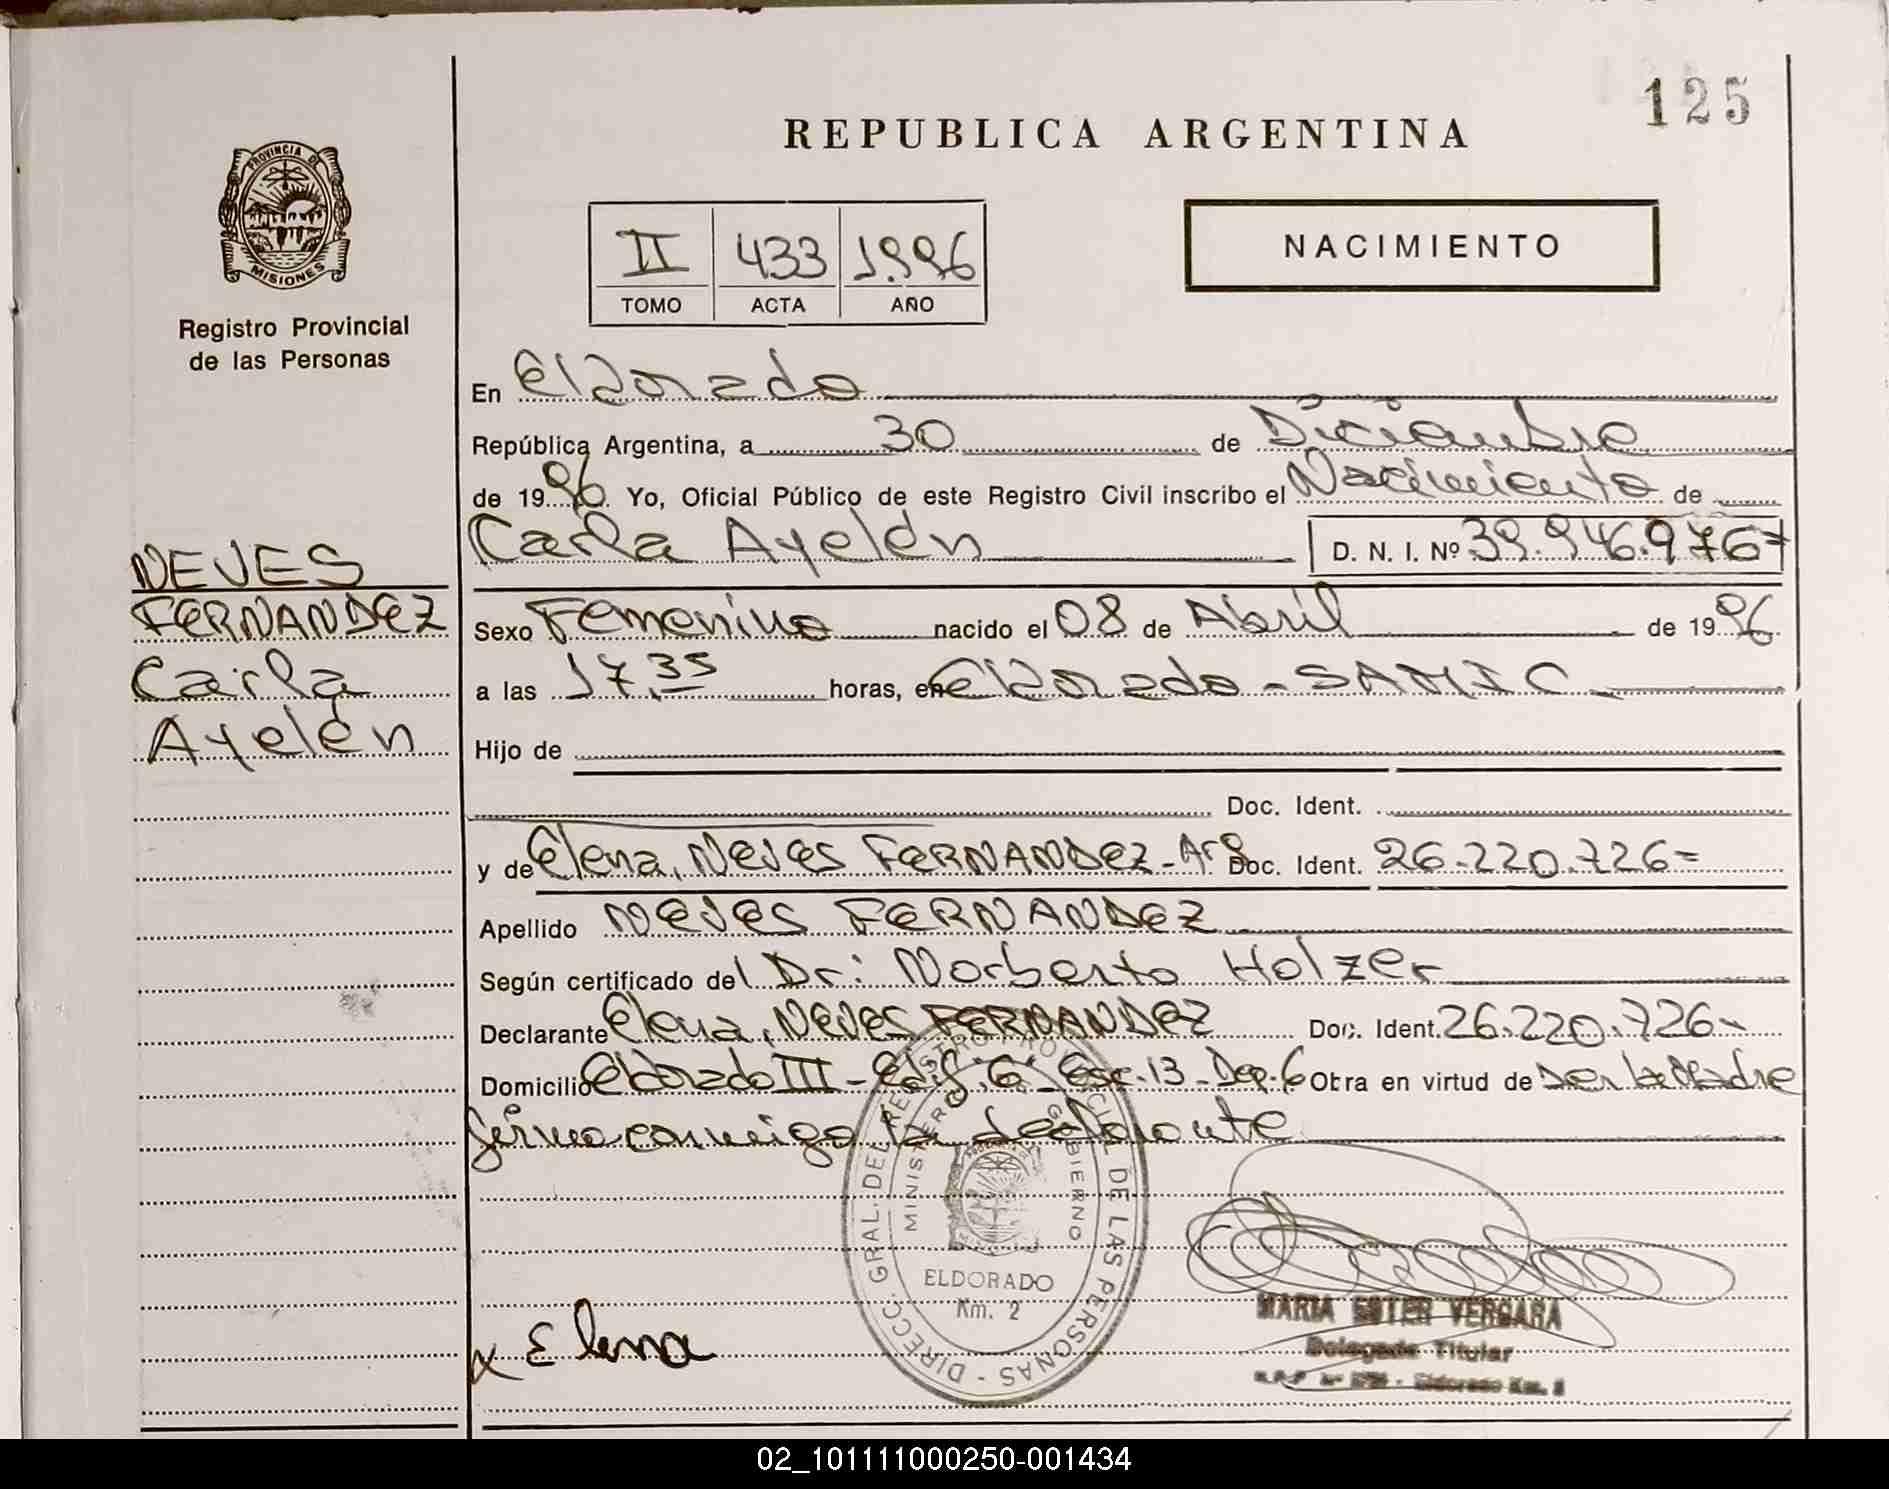 125
REPUBLICA ARGENTINA
PROVINCIA DE
MISIONES
Registro Provincial
de las Personas
II 433 1996
TOMO ACTA AÑO
NACIMIENTO
NEVES
FERNANDEZ
Carla
Ayelén
En Eldorado
República Argentina, a 30 de Diciembre
de 1996. Yo, Oficial Público de este Registro Civil inscribo el Nacimiento de
Carla Ayelén D. N. I. Nº 39.946.976=
Sexo Femenino nacido el 08 de Abril de 1996
a las 17,35 horas, en Eldorado - SAMIC -
Hijo de
Doc. Ident.
y de Elena, Neves FERNANDEZ - Arg Doc. Ident. 26.220.726=
Apellido NEVES FERNANDEZ
Según certificado del Dr: Norberto Holzer
Declarante Elena, NEVES FERNANDEZ Doc. Ident. 26.220.726-
Domicilio Eldorado III - Edif. 6 - Esc. 13 - Dep. 6 Obra en virtud de ser la Madre
firma conmigo la declarante
DIRECC. GRAL. DEL REGISTRO PROVINCIAL DE LAS PERSONAS -
MINISTERIO GOBIERNO
ELDORADO
Km. 2
x Elena
MARIA ESTER VERGARA
Delegada Titular
Eldorado Km. 2
02_101111000250-001434